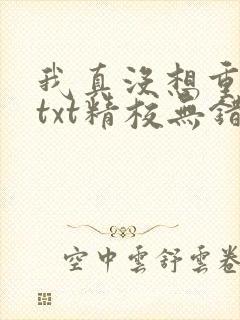 我真没想重
txt精校無錯
空中雲舒雲卷